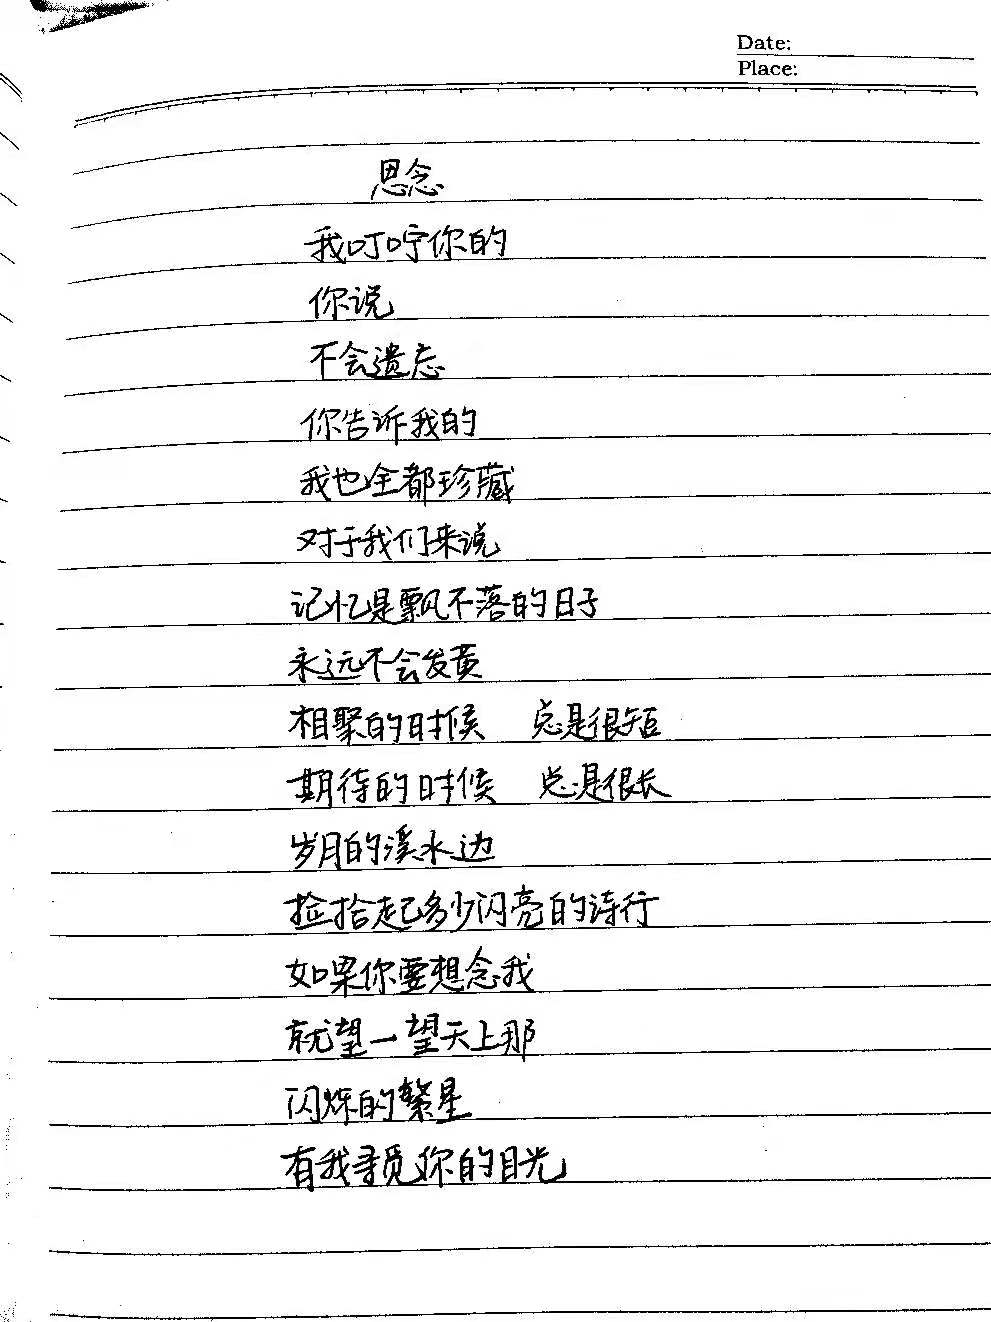 Date:
Place:
思念
我叮咛你的
你说
不会遗忘
你告诉我的
我也全都珍藏
对于我们来说
记忆是飘不落的日子
永远不会发黄
相聚的时候 总是很短
期待的时候 总是很长
岁月的溪水边
捡拾起多少闪亮的诗行
如果你要想念我
就望一望天上那
闪烁的繁星
有我寻觅你的目光